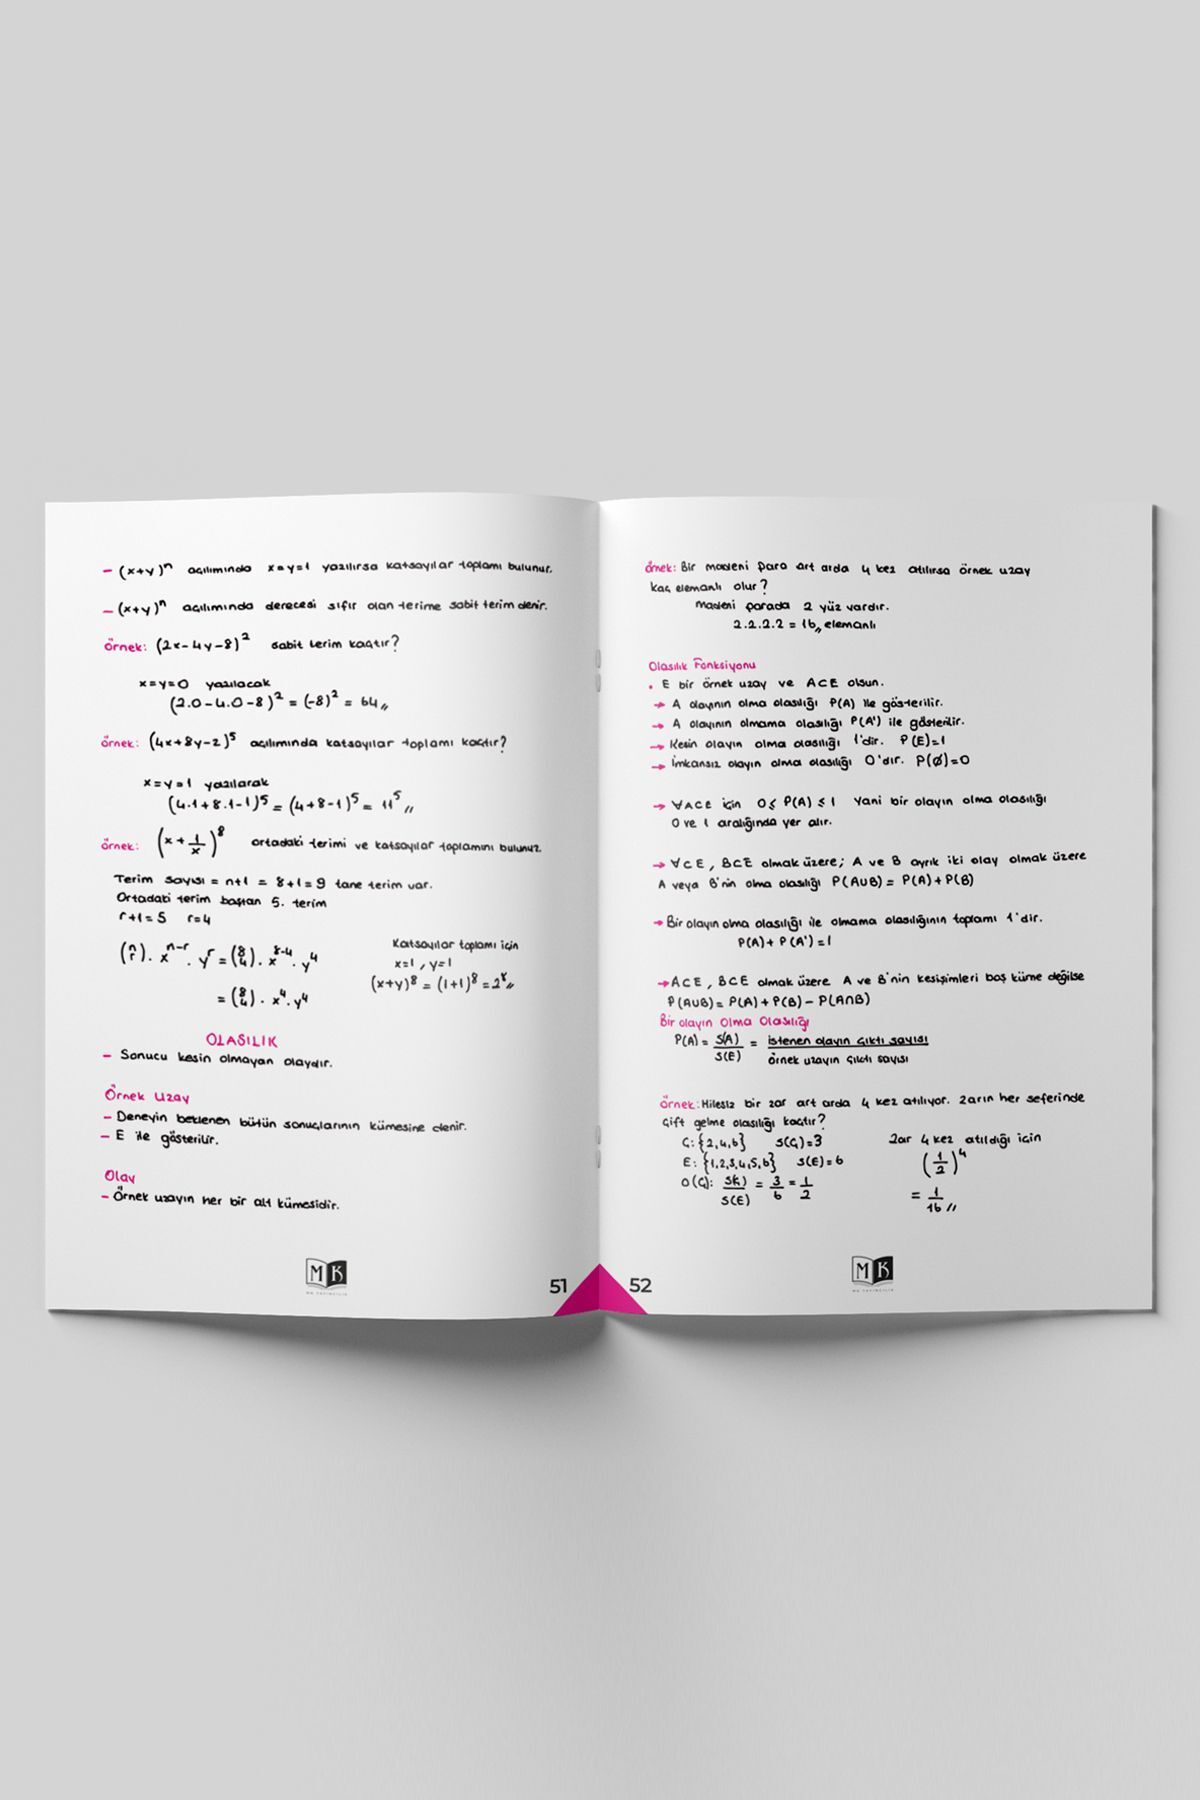 - (x+y)ⁿ açılımında x=y=1 yazılırsa katsayılar toplamı bulunur.
- (x+y)ⁿ açılımında derecesi sıfır olan terime sabit terim denir.
örnek: (2x-4y-8)² sabit terim kaçtır?
x=y=0 yazılacak
(2.0-4.0-8)² = (-8)² = 64//
örnek: (4x+8y-2)⁵ açılımında katsayılar toplamı kaçtır?
x=y=1 yazılarak
(4.1+8.1-1)⁵ = (4+8-1)⁵ = 11⁵//
örnek: (x+1/x)⁸ ortadaki terimi ve katsayılar toplamını bulunuz.
Terim sayısı = n+1 = 8+1=9 tane terim var.
Ortadaki terim baştan 5. terim
r+1=5 r=4
(n r). xⁿ⁻ʳ. yʳ = (8 4). x⁸⁻⁴. y⁴
= (8 4). x⁴. y⁴
Katsayılar toplamı için
x=1, y=1
(x+y)⁸ = (1+1)⁸ = 2⁸//
OLASILIK
- Sonucu kesin olmayan olaydır.
Örnek Uzay
- Deneyin beklenen bütün sonuçlarının kümesine denir.
- E ile gösterilir.
Olay
- Örnek uzayın her bir alt kümesidir.
MK
MK YAYINCILIK
51
örnek: Bir madeni para art arda 4 kez atılırsa örnek uzay
kaç elemanlı olur?
madeni parada 2 yüz vardır.
2.2.2.2 = 16,, elemanlı
Olasılık Fonksiyonu
• E bir örnek uzay ve ACE olsun.
→ A olayının olma olasılığı P(A) ile gösterilir.
→ A olayının olmama olasılığı P(A') ile gösterilir.
→ Kesin olayın olma olasılığı 1'dir. P(E)=1
→ İmkansız olayın olma olasılığı 0'dır. P(∅)=0
→ ∀ACE için 0≤ P(A) ≤1 Yani bir olayın olma olasılığı
0 ve 1 aralığında yer alır.
→ ∀CE, BCE olmak üzere; A ve B ayrık iki olay olmak üzere
A veya B'nin olma olasılığı P(A∪B) = P(A)+P(B)
→ Bir olayın olma olasılığı ile olmama olasılığının toplamı 1'dir.
P(A)+P(A')=1
→ ACE, BCE olmak üzere A ve B'nin kesişimleri boş küme değilse
P(A∪B) = P(A)+P(B)-P(A∩B)
Bir olayın Olma Olasılığı
P(A) = S(A)/S(E) = istenen olayın çıktı sayısı / örnek uzayın çıktı sayısı
örnek: Hilesiz bir zar art arda 4 kez atılıyor. zarın her seferinde
çift gelme olasılığı kaçtır?
Ç: {2,4,6} S(Ç)=3
E: {1,2,3,4,5,6} S(E)=6
O(Ç): S(Ç)/S(E) = 3/6 = 1/2
zar 4 kez atıldığı için
(1/2)⁴
= 1/16//
MK
MK YAYINCILIK
52